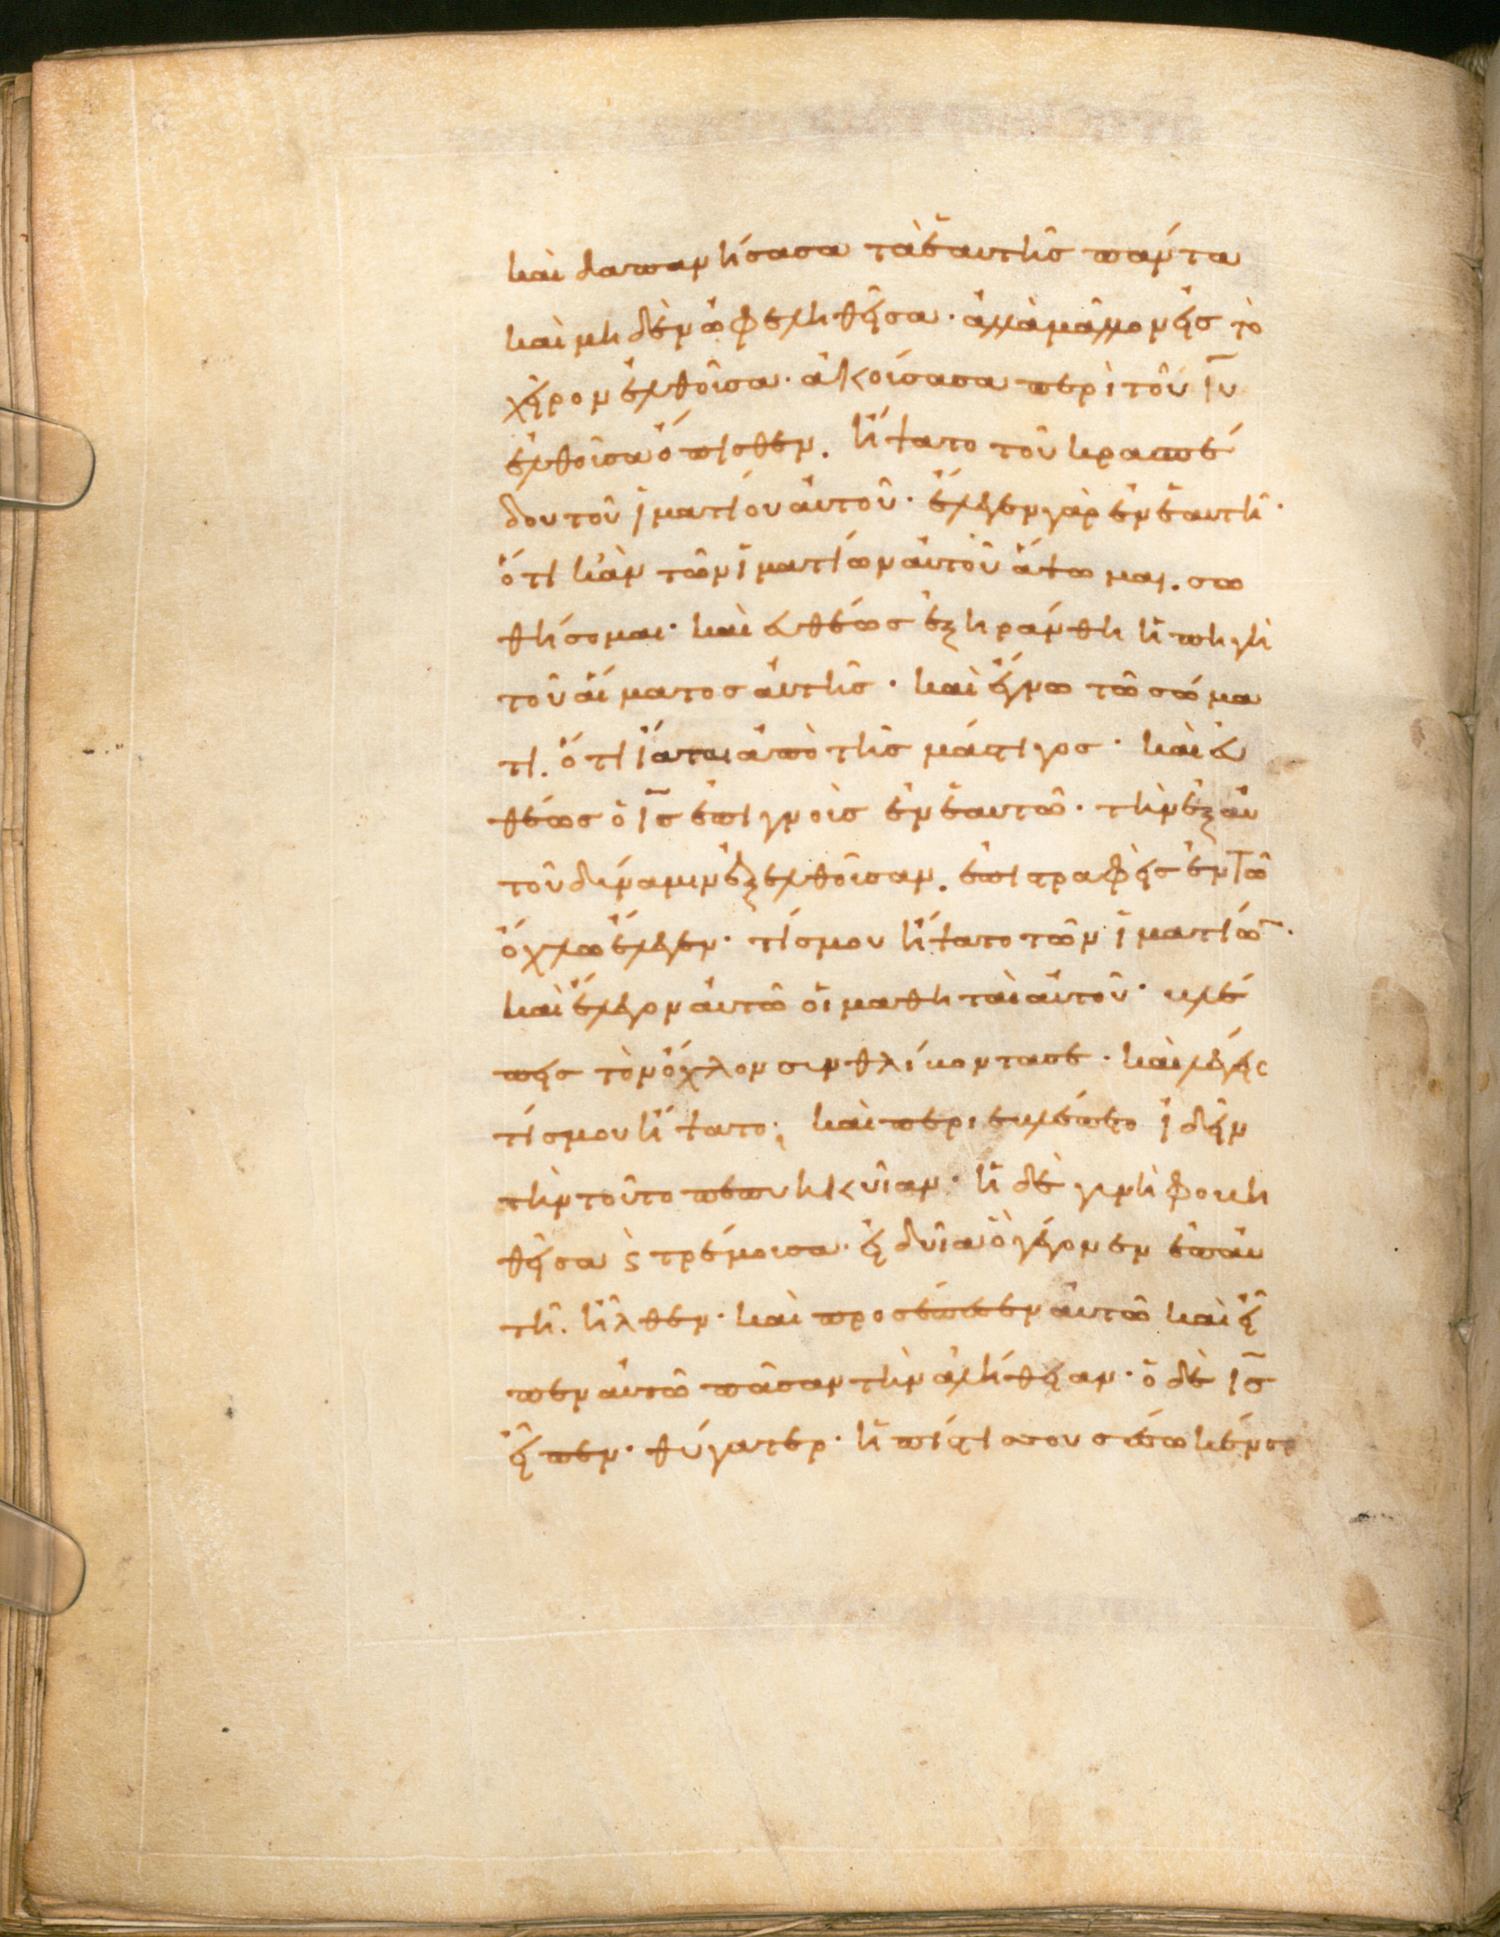 καὶ δαπανήσασα τὰ ἑαυτῆς πάντα
καὶ μηδὲν ὠφεληθεῖσα· ἀλλὰ μᾶλλον εἰς τὸ
χεῖρον ἐλθοῦσα· ἀκούσασα περὶ τοῦ ι̅υ̅
ἐλθοῦσα ὄπισθεν. ἥψατο τοῦ κρασπέ
δου τοῦ ἱματίου αὐτοῦ· ἔλεγεν γὰρ ἐν ἑαυτῆ·
ὅτι κἂν τῶν ἱματίων αὐτοῦ ἅψωμαι. σω
θήσομαι· καὶ εὐθέως ἐξηράνθη ἡ πηγὴ
τοῦ αἵματος αὐτῆς· καὶ ἔγνω τῶ σώμα
τι. ὅτι ἴαται ἀπὸ τῆς μάστιγος· καὶ εὐ
θέως ὁ ι̅ς̅ ἐπιγνοὺς ἐν ἑαυτῶ· τὴν ἐξ αὐ
τοῦ δύναμιν ἐξελθοῦσαν. ἐπιστραφεὶς ἐν τῶ
ὄχλω ἔλεγεν· τίς μου ἥψατο τῶν ἱματίω̅·
καὶ ἔλεγον αὐτῶ οἱ μαθηταὶ αὐτοῦ· βλέ
πεις τὸν ὄχλον συνθλίβοντα σε· καὶ λέγεις
τίς μου ἥψατο; καὶ περιεβλέπετο ἰδεῖν
τὴν τοῦτο πεποιηκυῖαν· ἡ δὲ γυνὴ φοβη
θεῖσα ϛ τρέμουσα· εἰδυῖα ὃ γέγονεν ἐπ αὐ
τῆ. ἦλθεν· καὶ προσέπεσεν αὐτῶ καὶ εἶ
πεν αὐτῶ πᾶσαν τὴν ἀλήθειαν· ὁ δὲ ι̅ς̅
εἶπεν· θύγατερ· ἡ πίστις σου σέσωκέν σε